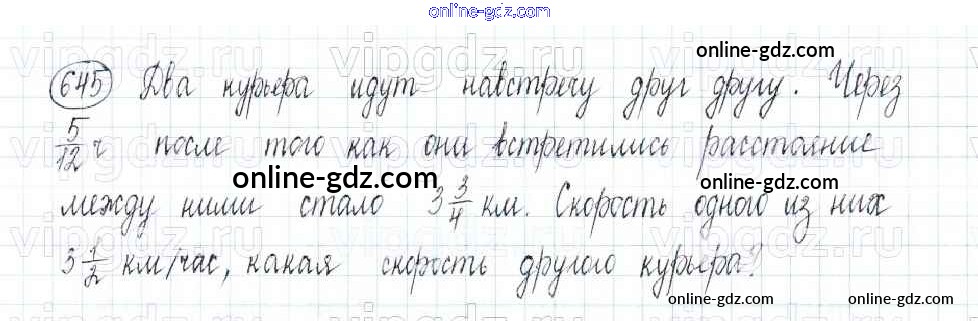 online-gdz.com
online-gdz.com
645 Два курьера идут навстречу друг другу. Через
5/12 ч после того как они встретились расстояние
online-gdz.com
online-gdz.com
между ними стало 3 3/4 км. Скорость одного из них
3 1/2 км/час, какая скорость другого курьера?
online-gdz.com
online-gdz.com
vipgdz.ru